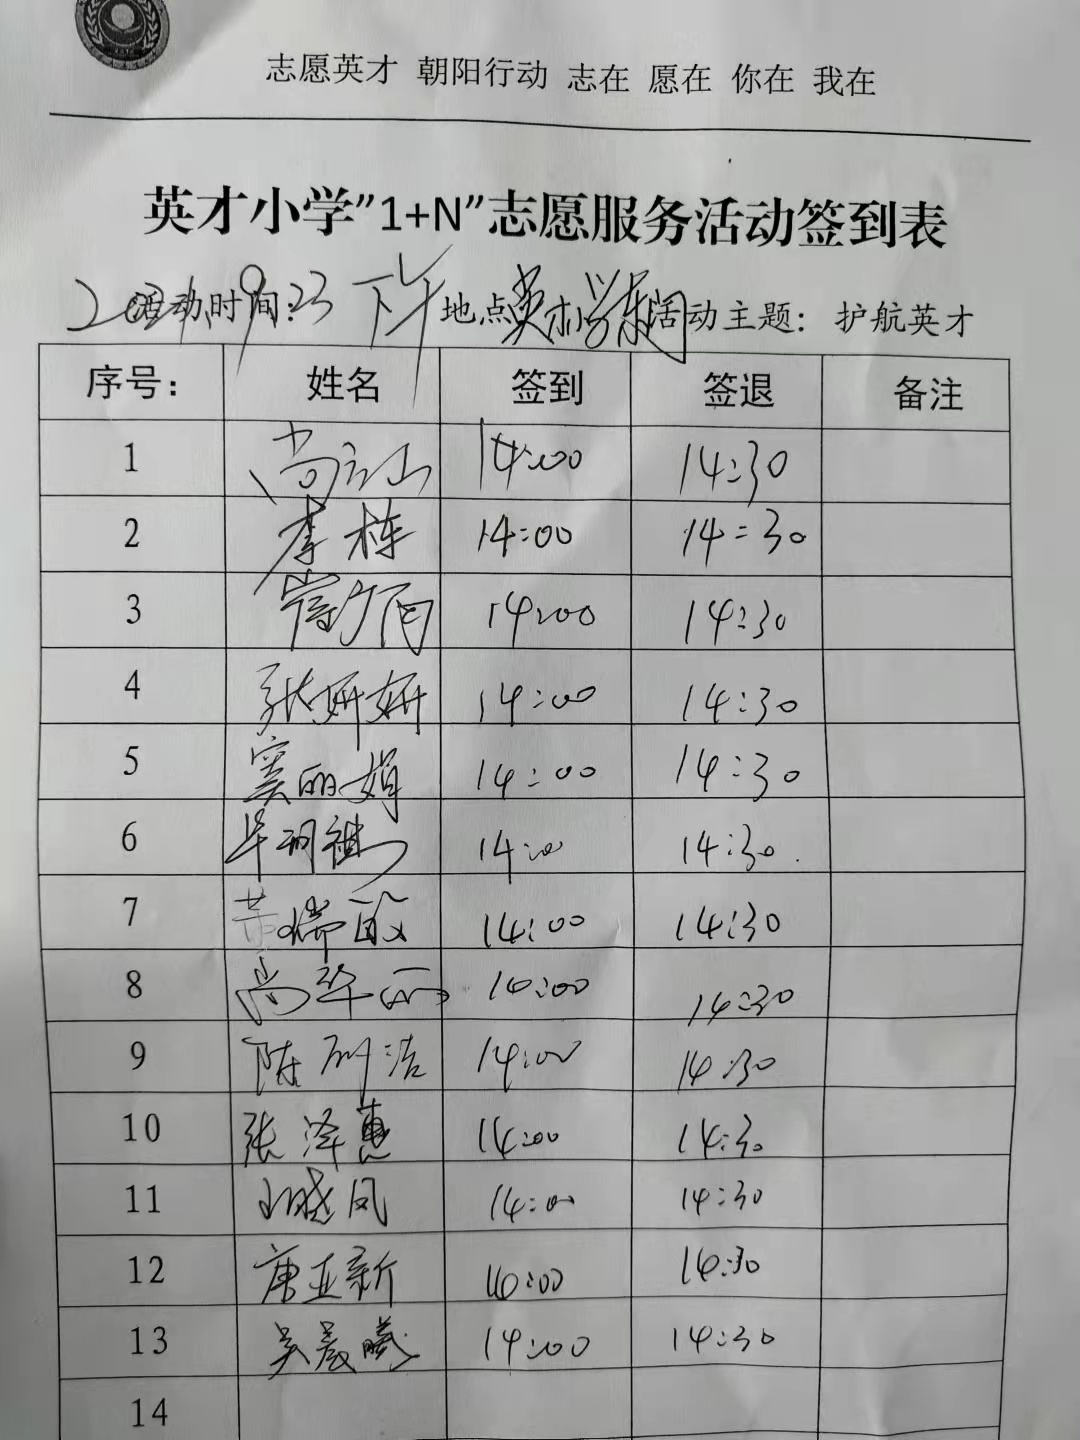 志愿英才 朝阳行动 志在 愿在 你在 我在
英才小学”1+N”志愿服务活动签到表
活动时间: 9.23 下午 地点 英才小学东门 活动主题: 护航英才
序号: 姓名 签到 签退 备注
1 14:00 14:30
2 李栋 14:00 14:30
3 14:00 14:30
4 张妍妍 14:00 14:30
5 窦丽娟 14:00 14:30
6 14:00 14:30
7 14:00 14:30
8 尚华丽 14:00 14:30
9 陈 浩 14:00 14:30
10 张泽惠 14:00 14:30
11 晓凤 14:00 14:30
12 唐亚新 14:00 14:30
13 吴晨曦 14:00 14:30
14